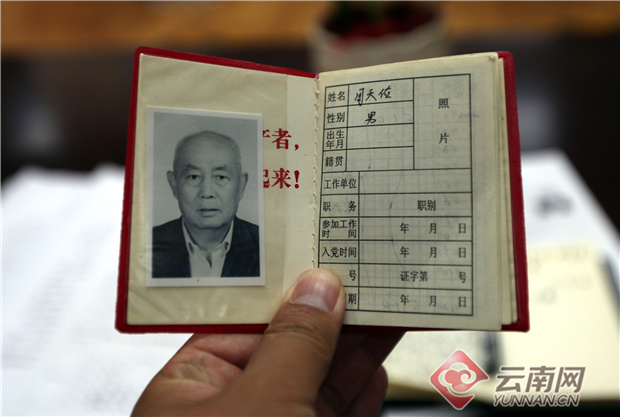 产者,
起来!
姓名 周天佐
性别 男
照
片
出生
年月
籍贯
工作单位
职 务 职别
参加工作
时间 年 月 日
入党时间 年 月 日
号 证字第 号
期 年 月 日
云南网
YUNNAN.CN